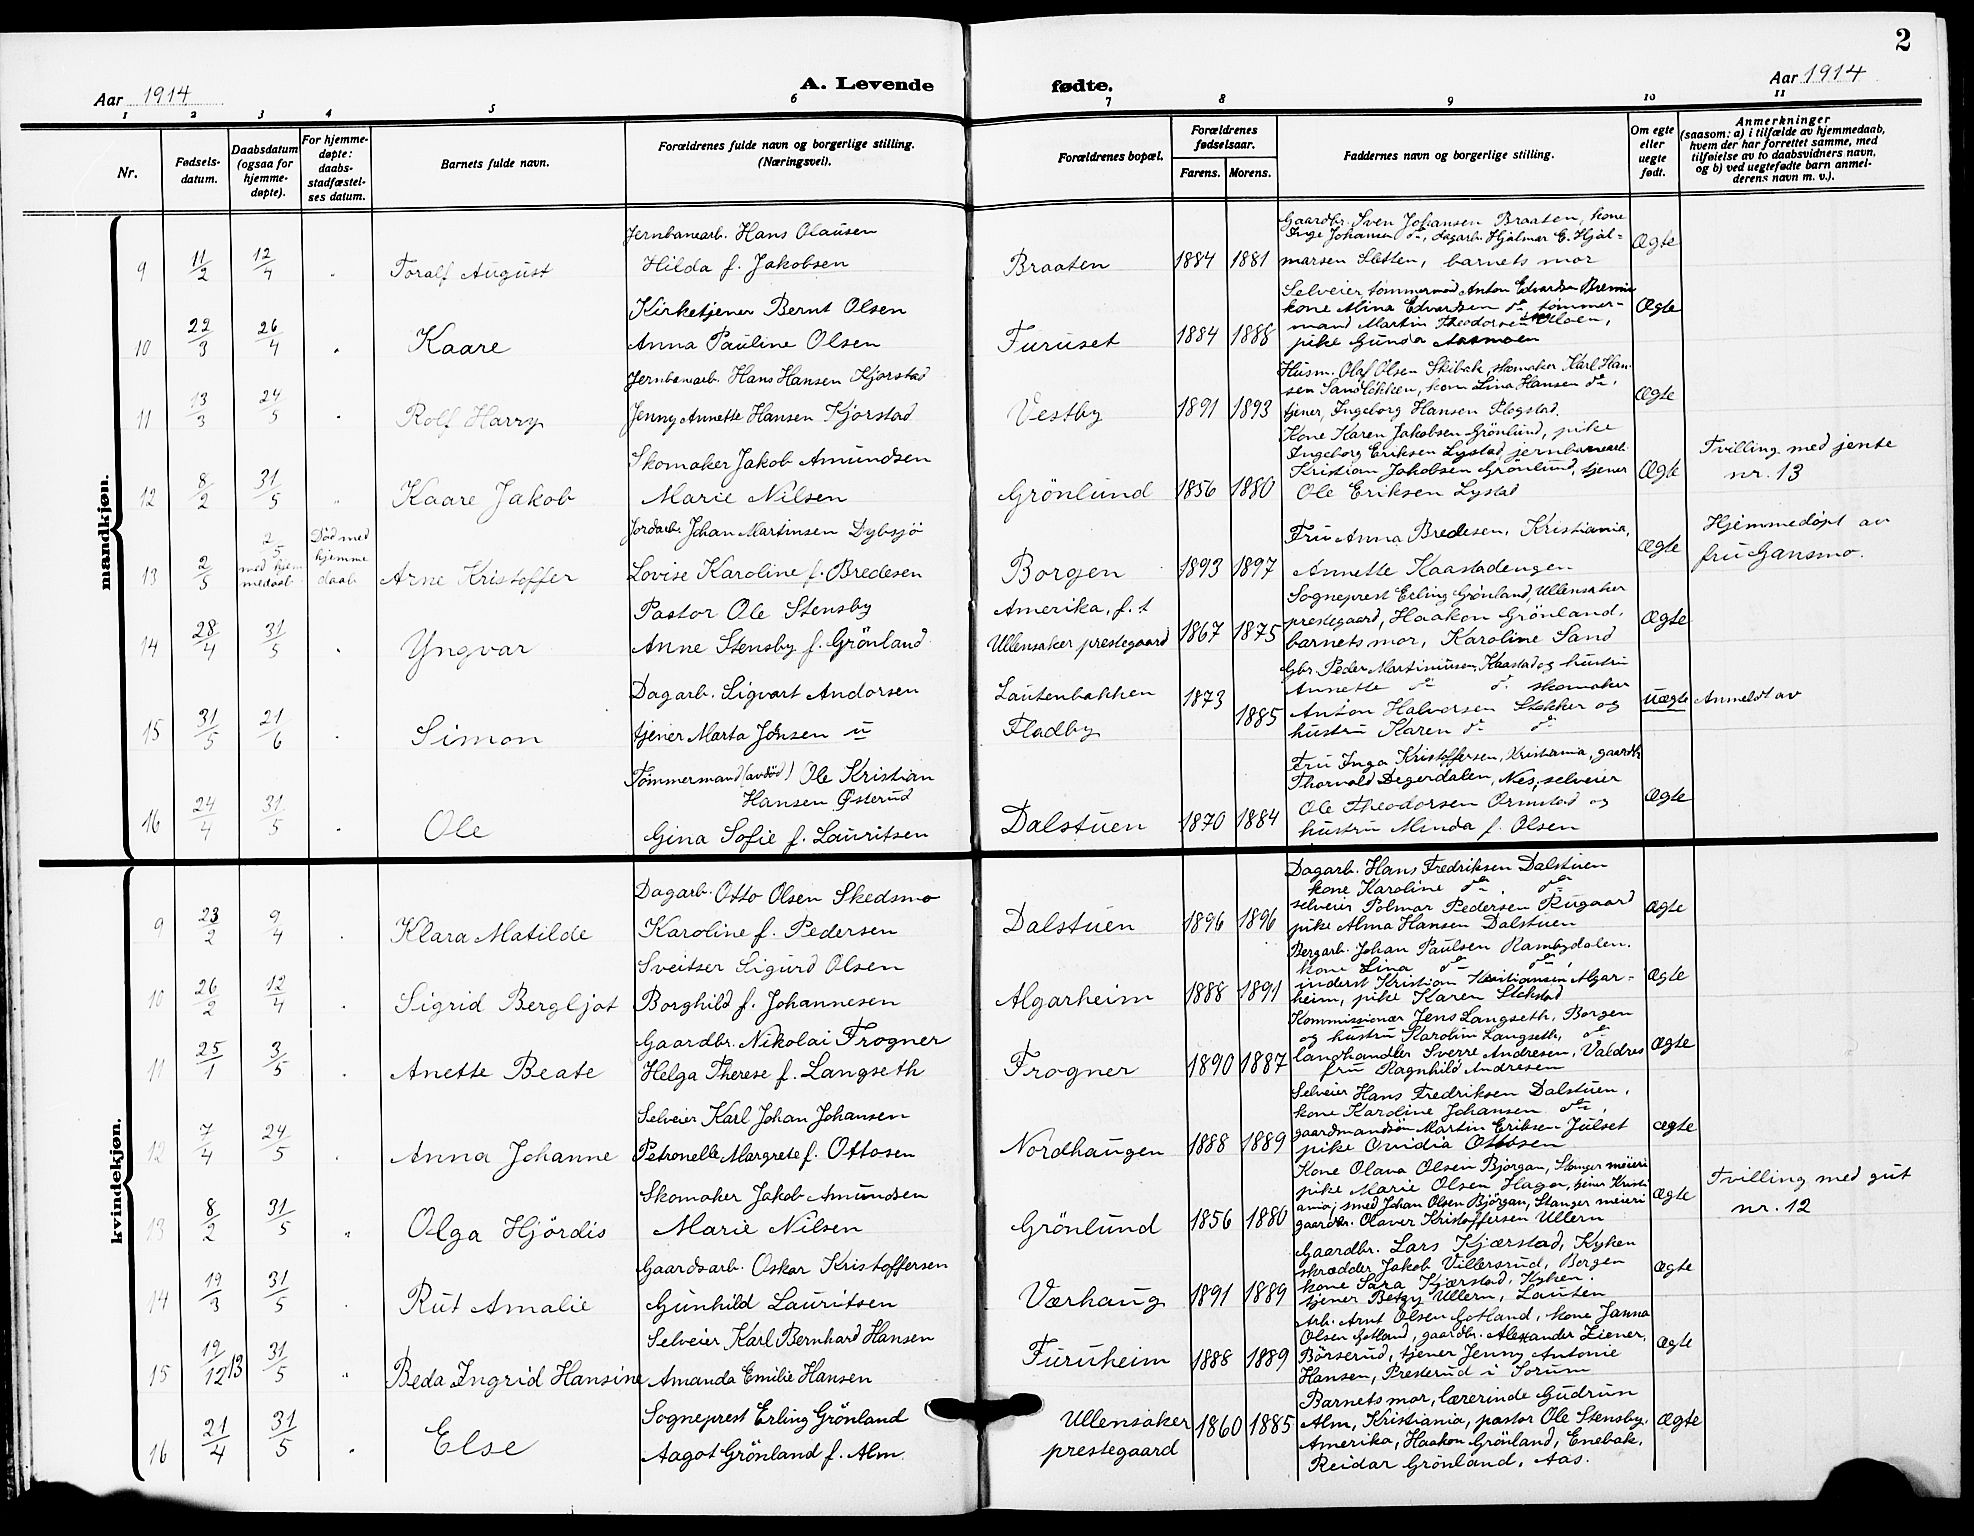 2
Aar 1914
A. Levende
fødte.
Aar 1914
1 2 3 4 5 6 7 8 9 10 11
Nr.
Fødsels-
datum.
Daabsdatum
(ogsaa for
hjemme-
døpte).
For hjemme-
døpte:
daabs-
stadfæstel-
ses datum.
Barnets fulde navn.
Forældrenes fulde navn og borgerlige stilling.
(Næringsvei).
Forældrenes bopæl.
Forældrenes
fødselsaar.
Farens. Morens.
Faddernes navn og borgerlige stilling.
Om egte
eller
uegte
født.
Anmerkninger
(saasom: a) i tilfælde av hjemmedaab,
hvem der har forrettet samme, med
tilføielse av to daabsvidners navn,
og b) ved uegtefødte barn anmel-
derens navn m. v.).
mandkjøn.
9 11/2 12/4 " Toralf August
Jernbanearb. Hans Olausen
Hilda f. Jakobsen
Braaten 1884 1881
Gaardbr. Sven Johansen Braaten, kone
Inga Johansen do, dagarb. Hjalmar E. Hjal-
marsen Sletten, barnets mor
Ægte
10 22/3 26/4 " Kaare
Kirketjener Bernt Olsen
Anna Pauline Olsen
Furuset 1884 1888
Selveier tømmermand Anton Edvardsen
kone Alina Edvardsen do, tømmer-
mand Martin Theodorsen
pike Gunda Aasmoen
Ægte
11 13/3 24/5 " Rolf Harry
Jernbanearb. Hans Hansen Kjørstad
Jenny Annette Hansen Kjørstad
Vestby 1891 1893
Husm. Olaf Olsen Skibak, skomaker Karl Han-
sen Sandløkken, kone Lina Hansen do,
tjener, Ingeborg Hansen Plogstad.
Ægte
12 8/2 31/5 " Kaare Jakob
Skomaker Jakob Amundsen
Marie Nilsen
Grönlund 1856 1880
Kone Karen Jakobsen Grönlund, pike
Ingeborg Eriksen Lystad, jernbanearb.
Kristian Jakobsen Grönlund, tjener
Ole Eriksen Lystad
Ægte
Tvilling med jente
nr. 13
13 2/5 2/5
med hjem
medaab
Død med
hjemme
daab
Arne Kristoffer
Jordarb. Johan Martinsen Dybsjö
Lovise Karoline f. Bredesen
Borgen 1893 1897
Fru Anna Bredesen, Kristiania,
Annette Kaastadengen
Ægte
Hjemmedøpt av
fru Gansmo.
14 28/4 31/5 " Yngvar
Pastor Ole Stensby
Anne Stensby f. Grönland
Amerika, f. t
Ullensaker prestegaard
1867 1875
Sogneprest Erling Grönland, Ullensaker
prestegaard, Haakon Grönland,
barnets mor, Karoline Sand
Ægte
15 31/5 21/6 " Simon
Dagarb. Sigvart Andorsen
tjener Marta Jönsen u
Lautenbakken
Fladby
1873
1885
Gbr. Peder Martinusen, Kaastad og hustru
Annette do do skomaker
Anton Halvorsen Stokker og
hustru Karen do do
uægte
Anmeldt av
16 24/4 31/5 " Ole
Tømmermand (avdød) Ole Kristian
Hansen Østerud
Gina Sofie f. Lauritsen
Dalstuen 1870 1884
Fru Inga Kristoffersen, Kristiania, gaardb.
Thorvald Degerdalen, Nes, selveier
Ole Theodorsen Ormstad og
hustru Minda f. Olsen
Ægte
kvindekjøn.
9 23/2 9/4 " Klara Matilde
Dagarb. Otto Olsen Skedsmo
Karoline f. Pedersen
Dalstuen 1896 1896
Dagarb. Hans Fredriksen Dalstuen
kone Karoline do. do
selveier Polmar Pedersen Rugaard
pike Alma Hansen Dalstuen
Ægte
10 26/2 12/4 " Sigrid Bergljot
Sveitser Sigurd Olsen
Borghild f. Johannesen
Algarheim 1888 1891
Bergarb. Johan Paulsen Rambydalen.
kone Lina do do,
inderst Kristian Kristiansen Algar-
heim, pike Karen Stokstad
Ægte
11 25/1 3/5 " Anette Beate
Gaardbr. Nikolai Frogner
Helga Therese f. Langseth
Frogner 1890 1887
Kommissionær Jens Langseth, Borgen
og hustru Karoline Langseth, do
landhandler Sverre Andresen, Valdres
fru Ragnhild Andresen
Ægte
12 7/4 24/5 " Anna Johanne
Selveier Karl Johan Johansen
Petronelle Margrete f. Ottosen
Nordhaugen 1888 1889
Selveier Hans Fredriksen Dalstuen,
kone Karoline Johansen do,
gaardmandsön Martin Eriksen Julset
pike Ovidia Ottosen
ægte
13 8/2 31/5 " Olga Hjördis
Skomaker Jakob Amundsen
Marie Nilsen
Grönlund 1856 1880
Kone Olava Olsen Bjørgan, Stanger meieri
pike Marie Olsen Hagen, tjener Kristi
ania, smed Johan Olsen Björgan, Stanger meieri
gaardbr. Olaver Kristoffersen Ullern
Ægte
Tvilling med gut
nr. 12
14 19/3 31/5 " Rut Amalie
Gaardsarb. Oskar Kristoffersen
Gunhild Lauritsen
Værhaug 1891 1889
Gaardbr. Lars Kjærstad, Kyken
skrædder Jakob Villersrud, Borgen
kone Sara Kjærstad, Kyken.
tjener Betzy Ullern, Lauten
Ægte
15 19/12 13 31/5 " Beda Ingrid Hansine
Selveier Karl Bernhard Hansen
Amanda Emilie Hansen
Furuheim 1888 1889
Arb. Arnt Olsen Gotland, kone Janna
Olsen Gotland, gaardbr. Alexander Ziener,
Börserud, tjener Jenny Antonie
Hansen, Presterud i Sorum
Ægte
16 21/4 31/5 " Else
Sogneprest Erling Grönland
Aagot Grönland f. Alm.
Ullensaker
prestegaard
1860 1885
Barnets mor, lærerinde Gudrun
Alm, Kristiania, pastor Ole Stensby,
Amerika, Haakon Grönland, Enebak,
Reidar Grönland, Aas.
Ægte